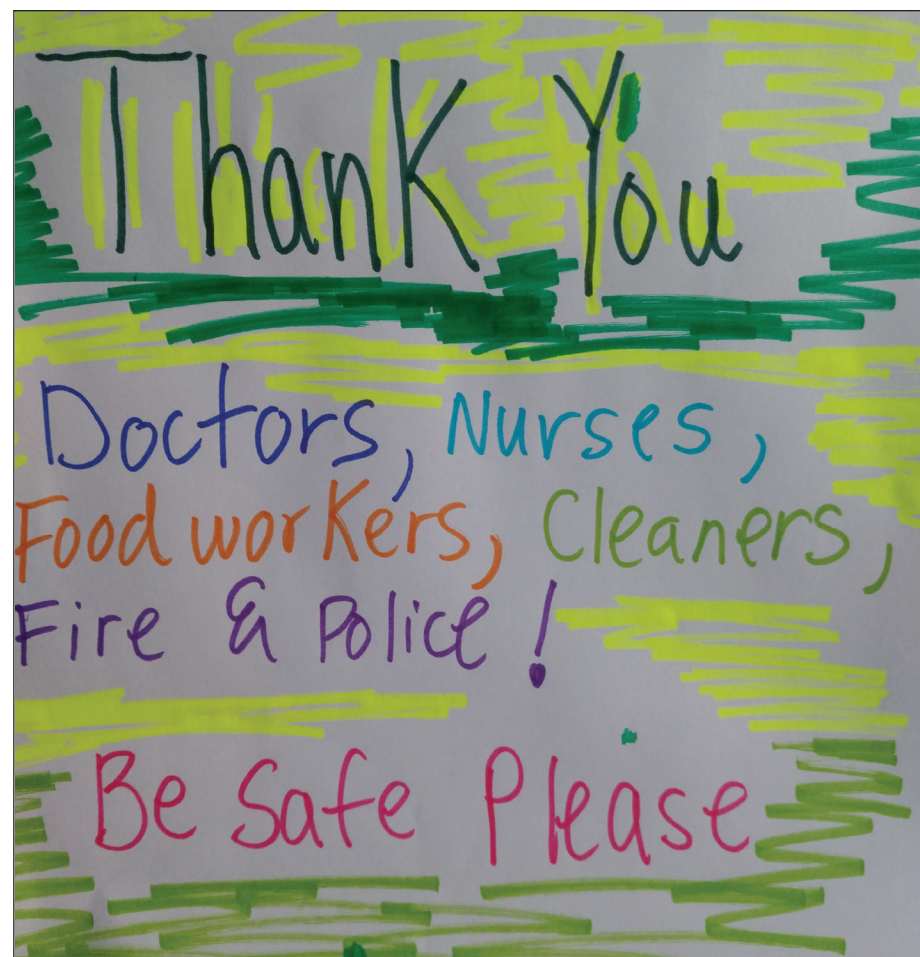 Thank You
Doctors, Nurses,
Food workers, Cleaners,
Fire & Police!
Be Safe Please